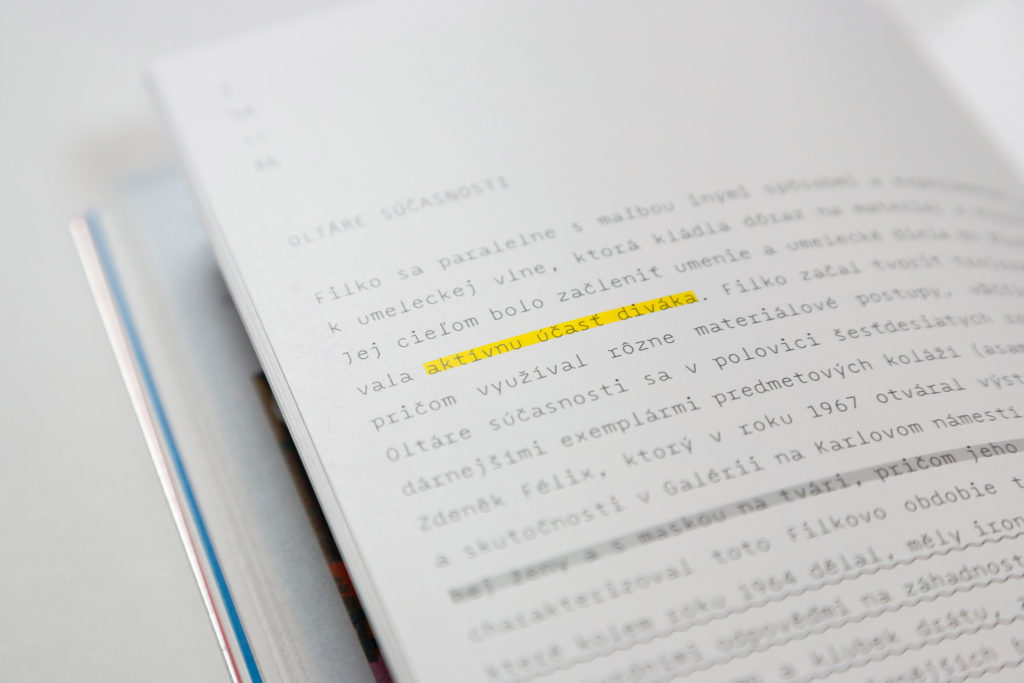 OLTÁRE SÚČASNOSTI
Filko sa paralelne s maľbou inými
k umeleckej vlne, ktorá kládla dôraz na materiál
jej cieľom bolo začleniť umenie a umelecké diela do
vala aktívnu účasť diváka. Filko začal tvoriť
pričom využíval rôzne materiálové postupy,
Oltáre súčasnosti sa v polovici šesťdesiatych
dárnejšími exemplármi predmetových koláží (asam
Zdeněk Félix, ktorý v roku 1967 otváral výst
a skutočnosti v Galérii na Karlovom námestí.
nej ženy a s maskou na tvári, pričom jeho
charakterizoval toto Filkovo obdobie t
které kolem roku 1964 dělal, měly iron
odpověďmi na záhadnost
a klubek drátu,